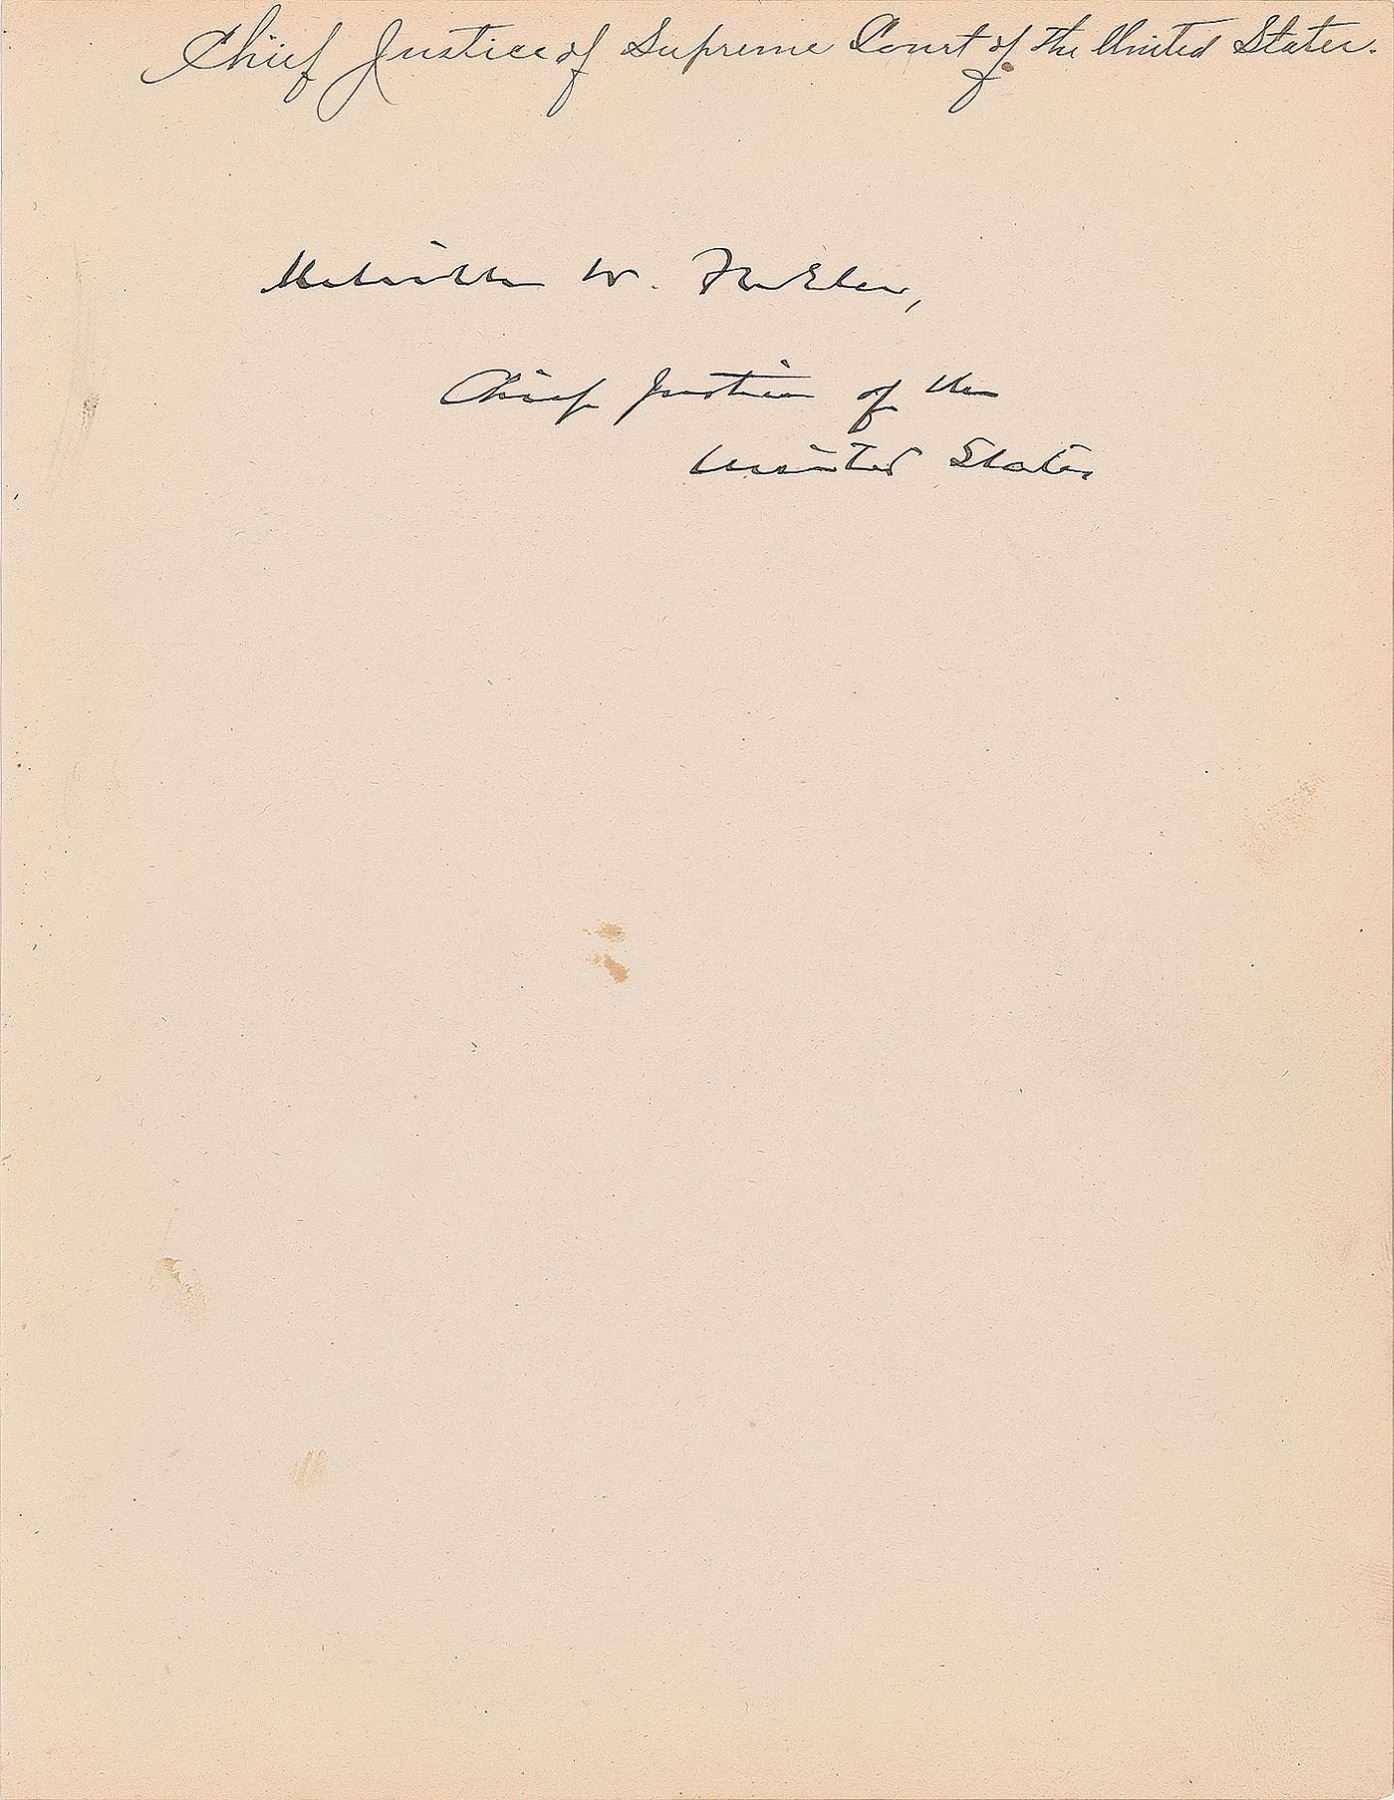 Chief Justice of Supreme Court of the United States.
Melville W. Fuller,
Chief Justice of the
United States